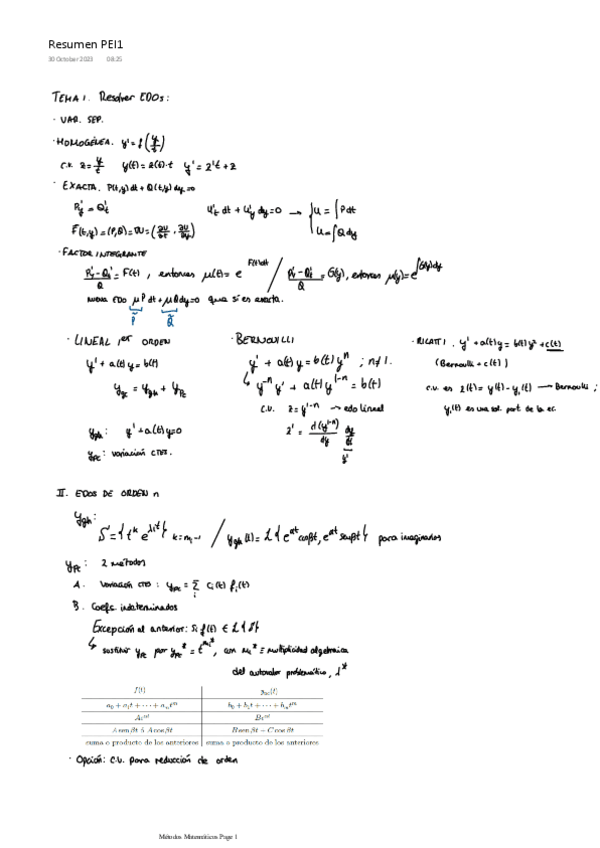 Resumen PEI1
30 October 2023 08:25
TEMA 1. Resolver EDOs:
· VAR. SEP.
· HOMOGÉNEA. y' = f(y/t)
c.v. z = y/t y(t) = z(t)·t y' = z't + z
· EXACTA. P(t,y)dt + Q(t,y)dy = 0
P'y = Q't U't dt + U'y dy = 0 → { U = ∫Pdt
U = ∫Qdy
F(t,y) = (P,Q) = ∇U = (∂U/∂t, ∂U/∂y)
· FACTOR INTEGRANTE
P'y - Q't / Q = F(t), entonces μ(t) = e^∫F(t)dt / P'y - Q't / Q = G(y), entonces μ(y) = e^∫G(y)dy
nueva EDO μP dt + μQ dy = 0 que sí es exacta.
P̃ Q̃
· LINEAL 1er ORDEN
y' + a(t)y = b(t)
y_gc = y_gh + y_pc
y_gh: y' + a(t)y = 0
y_pc: variación CTES.
· BERNOUILLI
y' + a(t)y = b(t)y^n ; n≠1.
↳ y^-n y' + a(t)y^1-n = b(t)
c.v. z = y^1-n → edo lineal
z' = d(y^1-n)/dy dy/dt
y'
· RICATTI. y' + a(t)y = b(t)y² + c(t)
(Bernoulli + c(t))
c.v. es z(t) = y(t) - y₁(t) → Bernoulli ;
y₁(t) es una sol. part. de la ec.
II. EDOS DE ORDEN n
y_gh:
S = { t^k e^λit } / y_gh(t) = L{ e^αt cosβt, e^αt senβt } para imaginarios
y_pc: 2 métodos
A. Variación CTES: y_pc = Σ ci(t) fi(t)
i
B. Coefs. indeterminados
Excepción al anterior: Si f(t) ∈ L{S}
↳ sustituir y_pc por y_pc* = t^m*, con m* = multiplicidad algebraica
del autovalor problemático, λ*
f(t) y_pc(t)
a₀ + a₁t + ··· + aₙtᵐ b₀ + b₁t + ··· + bₙtᵐ
Ae^αt Be^αt
A sen βt ó A cos βt B sen βt + C cos βt
suma o producto de los anteriores suma o producto de los anteriores
· Opción: C.V. para reducción de orden
Métodos Matemáticos Page 1